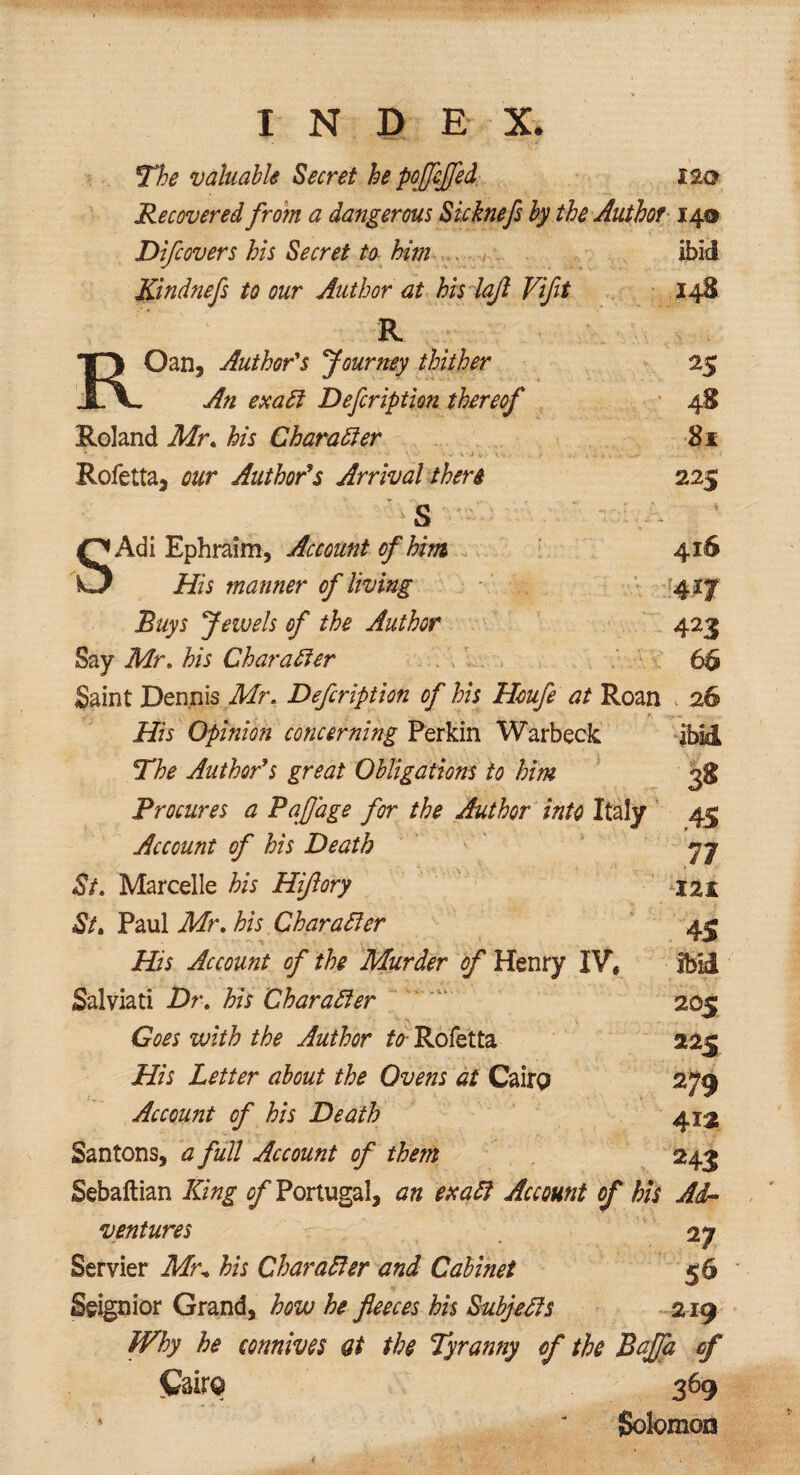 INDEX.
The valuable Secret he poſſeſſed 120
Recovered from a dangerous Sickneſs by the Author 140
Diſcovers his Secret to him ibid
Kindneſs to our Author at his laſt Viſit 148
R
ROan, Author's Journey thither 25
An exact Deſcription thereof 48
Roland Mr. his Character 81
Roſetta, our Author's Arrival there 225
S
SAdi Ephraim, Account of him 416
His manner of living 417
Buys Jewels of the Author 423
Say Mr. his Character 66
Saint Dennis Mr. Deſcription of his Houſe at Roan 26
His Opinion concerning Perkin Warbeck ibid
The Author's great Obligations to him 38
Procures a Paſſage for the Author into Italy 45
Account of his Death 77
St. Marcelle his Hiſtory 121
St. Paul Mr. his Character 45
His Account of the Murder of Henry IV. ibid
Salviati Dr. his Character 205
Goes with the Author to Roſetta 225
His Letter about the Ovens at Cairo 279
Account of his Death 412
Santons, a full Account of them 243
Sebaſtian King of Portugal, an exact Account of his Ad-
ventures 27
Servier Mr. his Character and Cabinet 56
Seignior Grand, how he fleeces his Subjects 219
Why he connives at the Tyranny of the Baſſa of
Cairo 369
Solomon